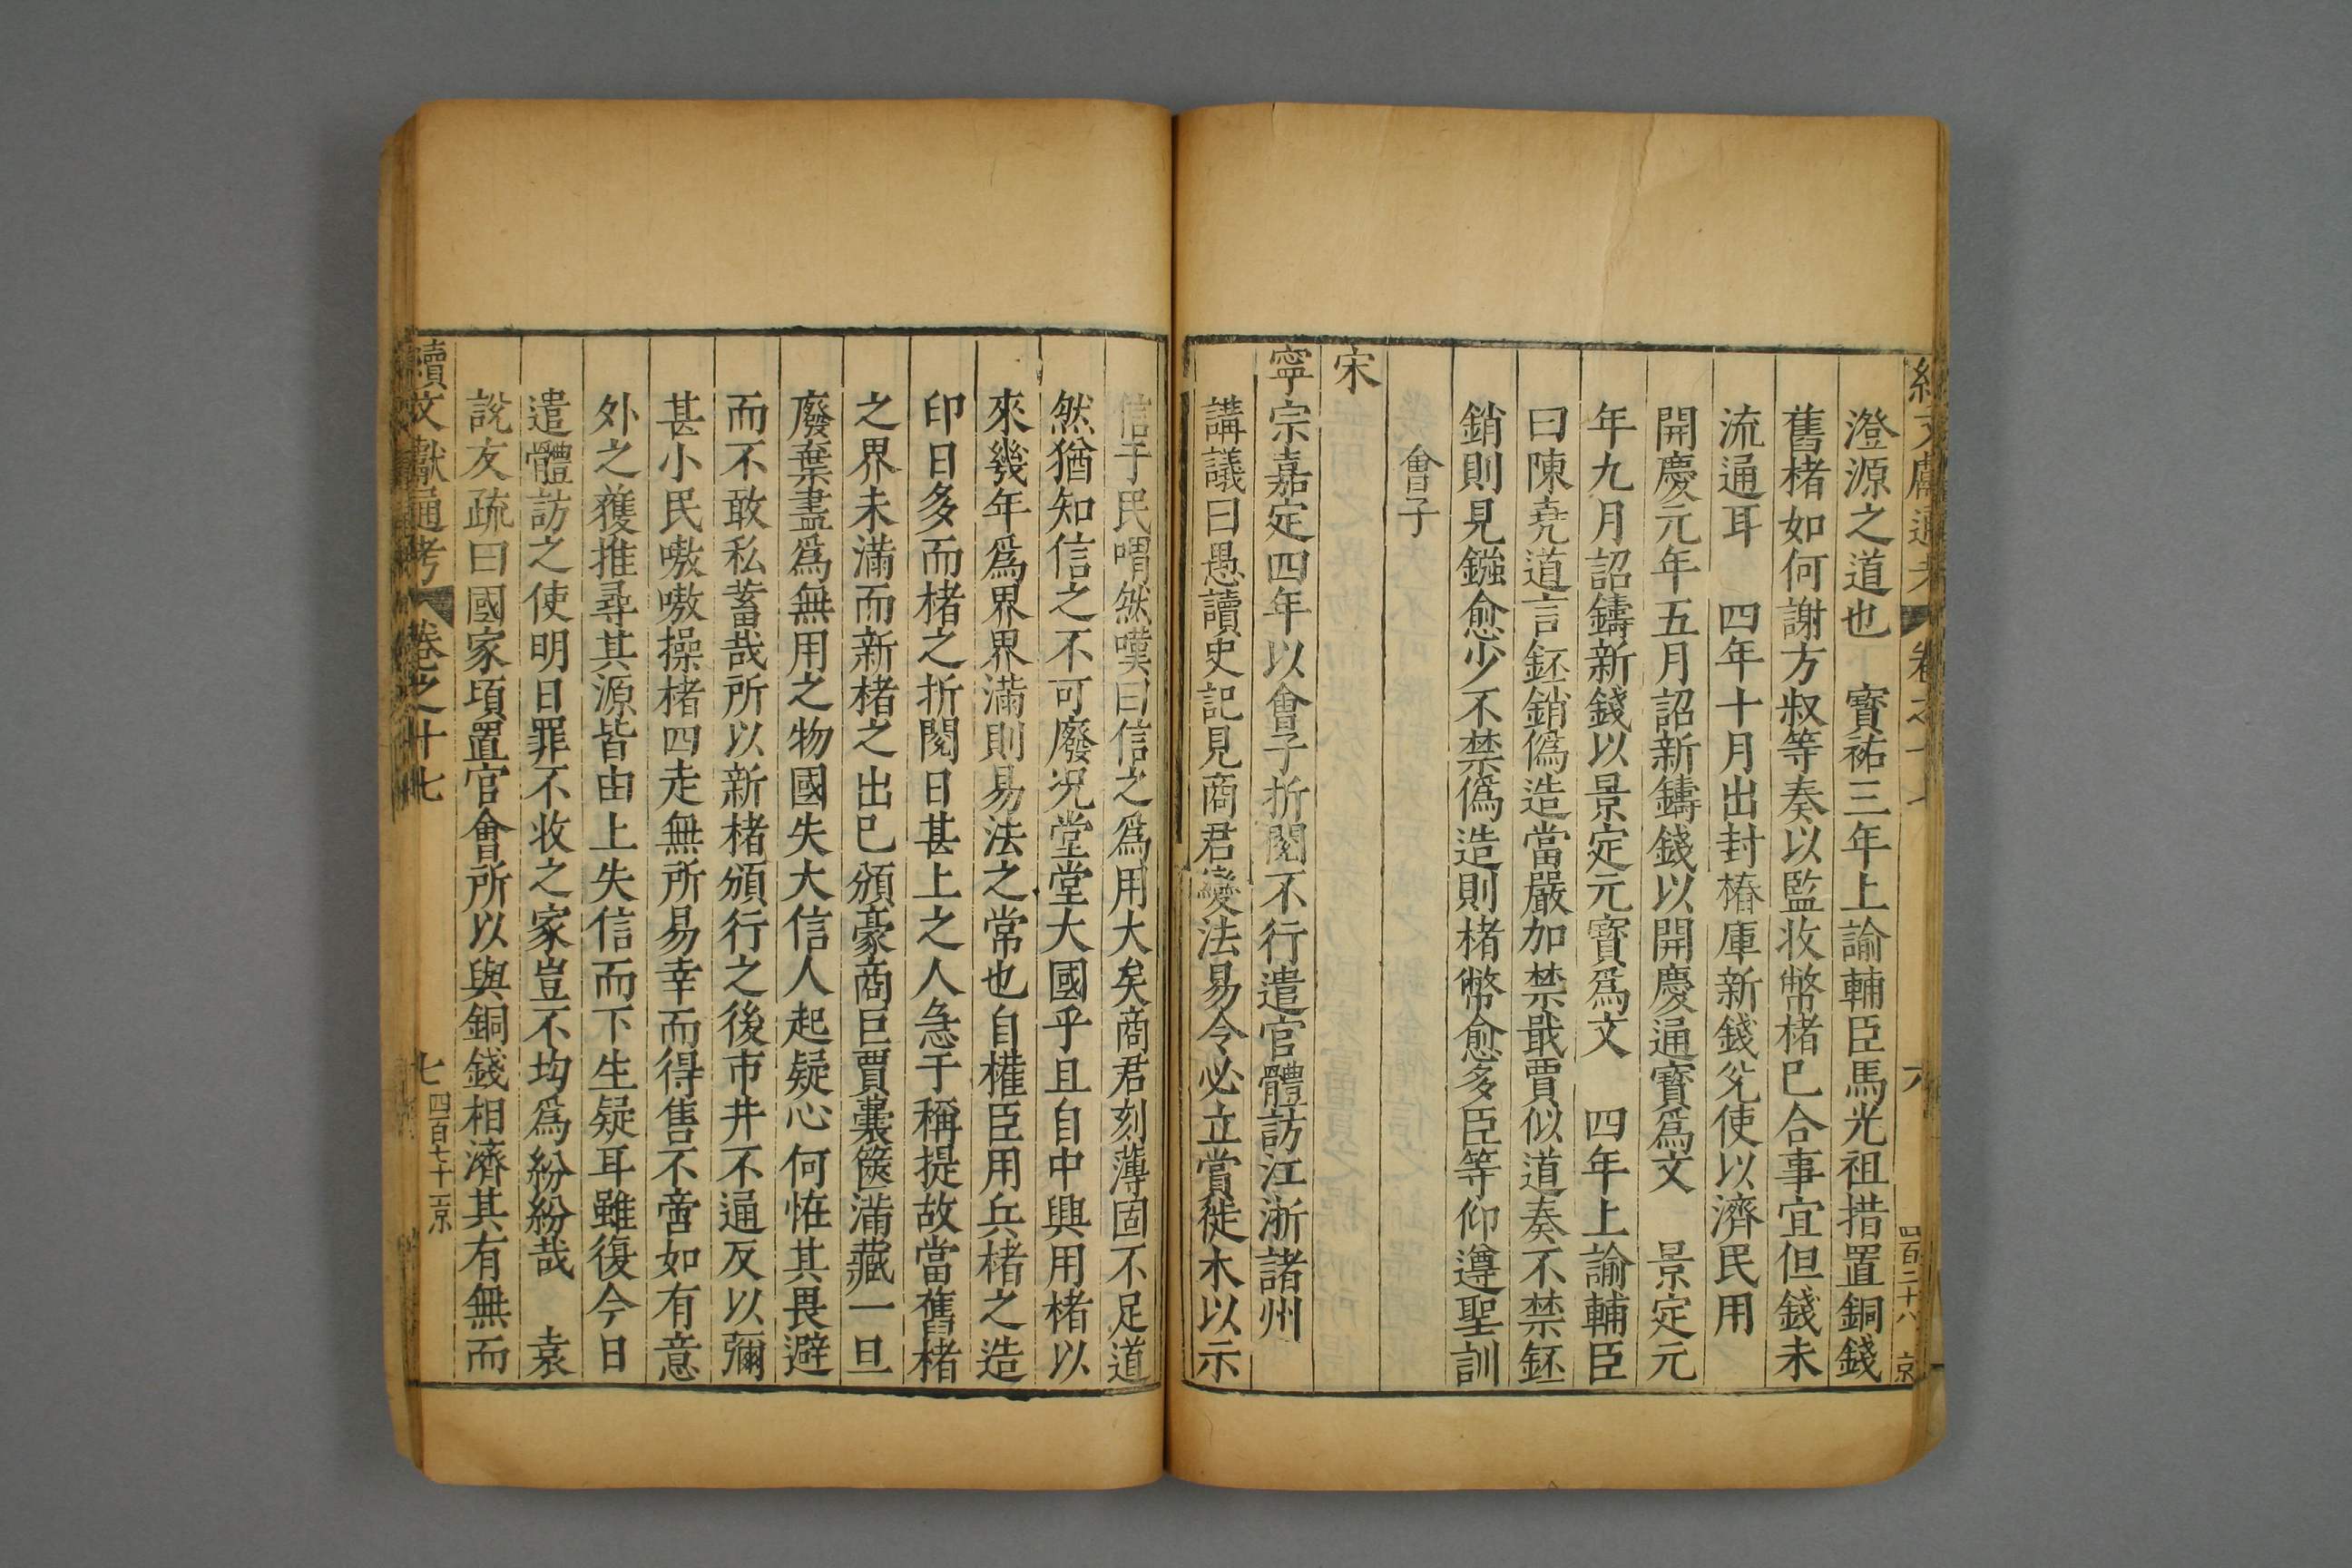 續文獻通考 卷之十七 六 四百二十八 京
澄源之道也 寶祐三年上諭輔臣馬光祖措置銅錢
舊楮如何謝方叔等奏以監收幣楮已合事宜但錢未
流通耳 四年十月出封樁庫新錢兌使以濟民用
開慶元年五月詔新鑄錢以開慶通寶爲文 景定元
年九月詔鑄新錢以景定元寶爲文 四年上諭輔臣
曰陳堯道言鈺銷僞造當嚴加禁戢賈似道奏不禁鈺
銷則見鏹愈少不禁僞造則楮幣愈多臣等仰遵聖訓
會子
宋
寧宗嘉定四年以會子折閱不行遣官體訪江浙諸州
講議曰愚讀史記見商君變法易令必立賞徙木以示
信于民喟然嘆曰信之爲用大矣商君刻薄固不足道
然猶知信之不可廢况堂堂大國乎且自中興用楮以
來幾年爲界界滿則易法之常也自權臣用兵楮之造
印日多而楮之折閱日甚上之人急于稱提故當舊楮
之界未滿而新楮之出已頒豪商巨賈囊篋滿藏一旦
廢棄盡爲無用之物國失大信人起疑心何恠其畏避
而不敢私蓄哉所以新楮頒行之後市井不通反以彌
甚小民嗷嗷操楮四走無所易幸而得售不啻如有意
外之獲推尋其源皆由上失信而下生疑耳雖復今日
遣體訪之使明日罪不收之家豈不均爲紛紛哉 袁
說友疏曰國家項置官會所以與銅錢相濟其有無而
續文獻通考 卷之十七 七 四百七十二 京